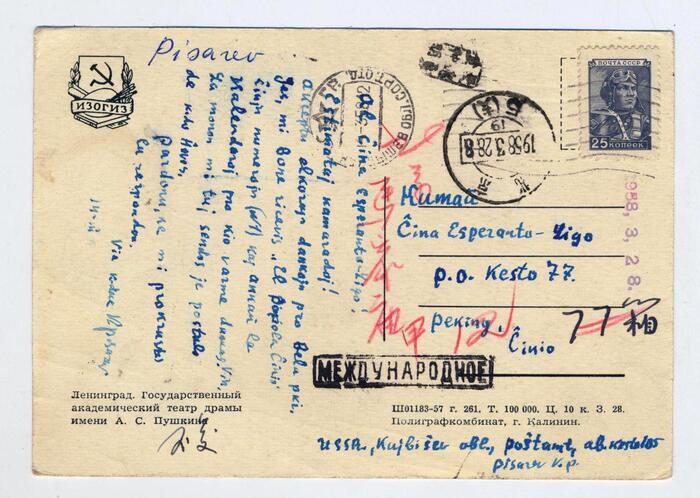 Pisarev
ИЗОГИЗ
Al Ĉina Esperanto-Ligo!
Estimataj kamaradoj!
Akceptu elkorajn dankojn pro bela pki,
Jes, mi bone ricevis "El Popola Ĉinio"
ĉiujn numerojn (№1) kaj ankaŭ la
Kalendaroj pro kio varme dankas Vin.
La monon mi tuj sendos je postulo
de k-do
Pardonu, ke mi prokrastis
la respondon.
Via k-do
ПОЧТА СССР
25 КОПЕЕК
1958.3.28.8
北京
1958. 3. 28.
Китай
Ĉina Esperanto-Ligo
p.o. Kesto 77.
peking,
Ĉinio
77
МЕЖДУНАРОДНОЕ
Ленинград. Государственный
академический театр драмы
имени А. С. Пушкина
Ш01183-57 г. 261. Т. 100 000. Ц. 10 к. З. 28.
Полиграфкомбинат, г. Калинин.
USSR., Kujbiŝev obl., poŝtamt, ab. kesto 105
pisarev v.p.